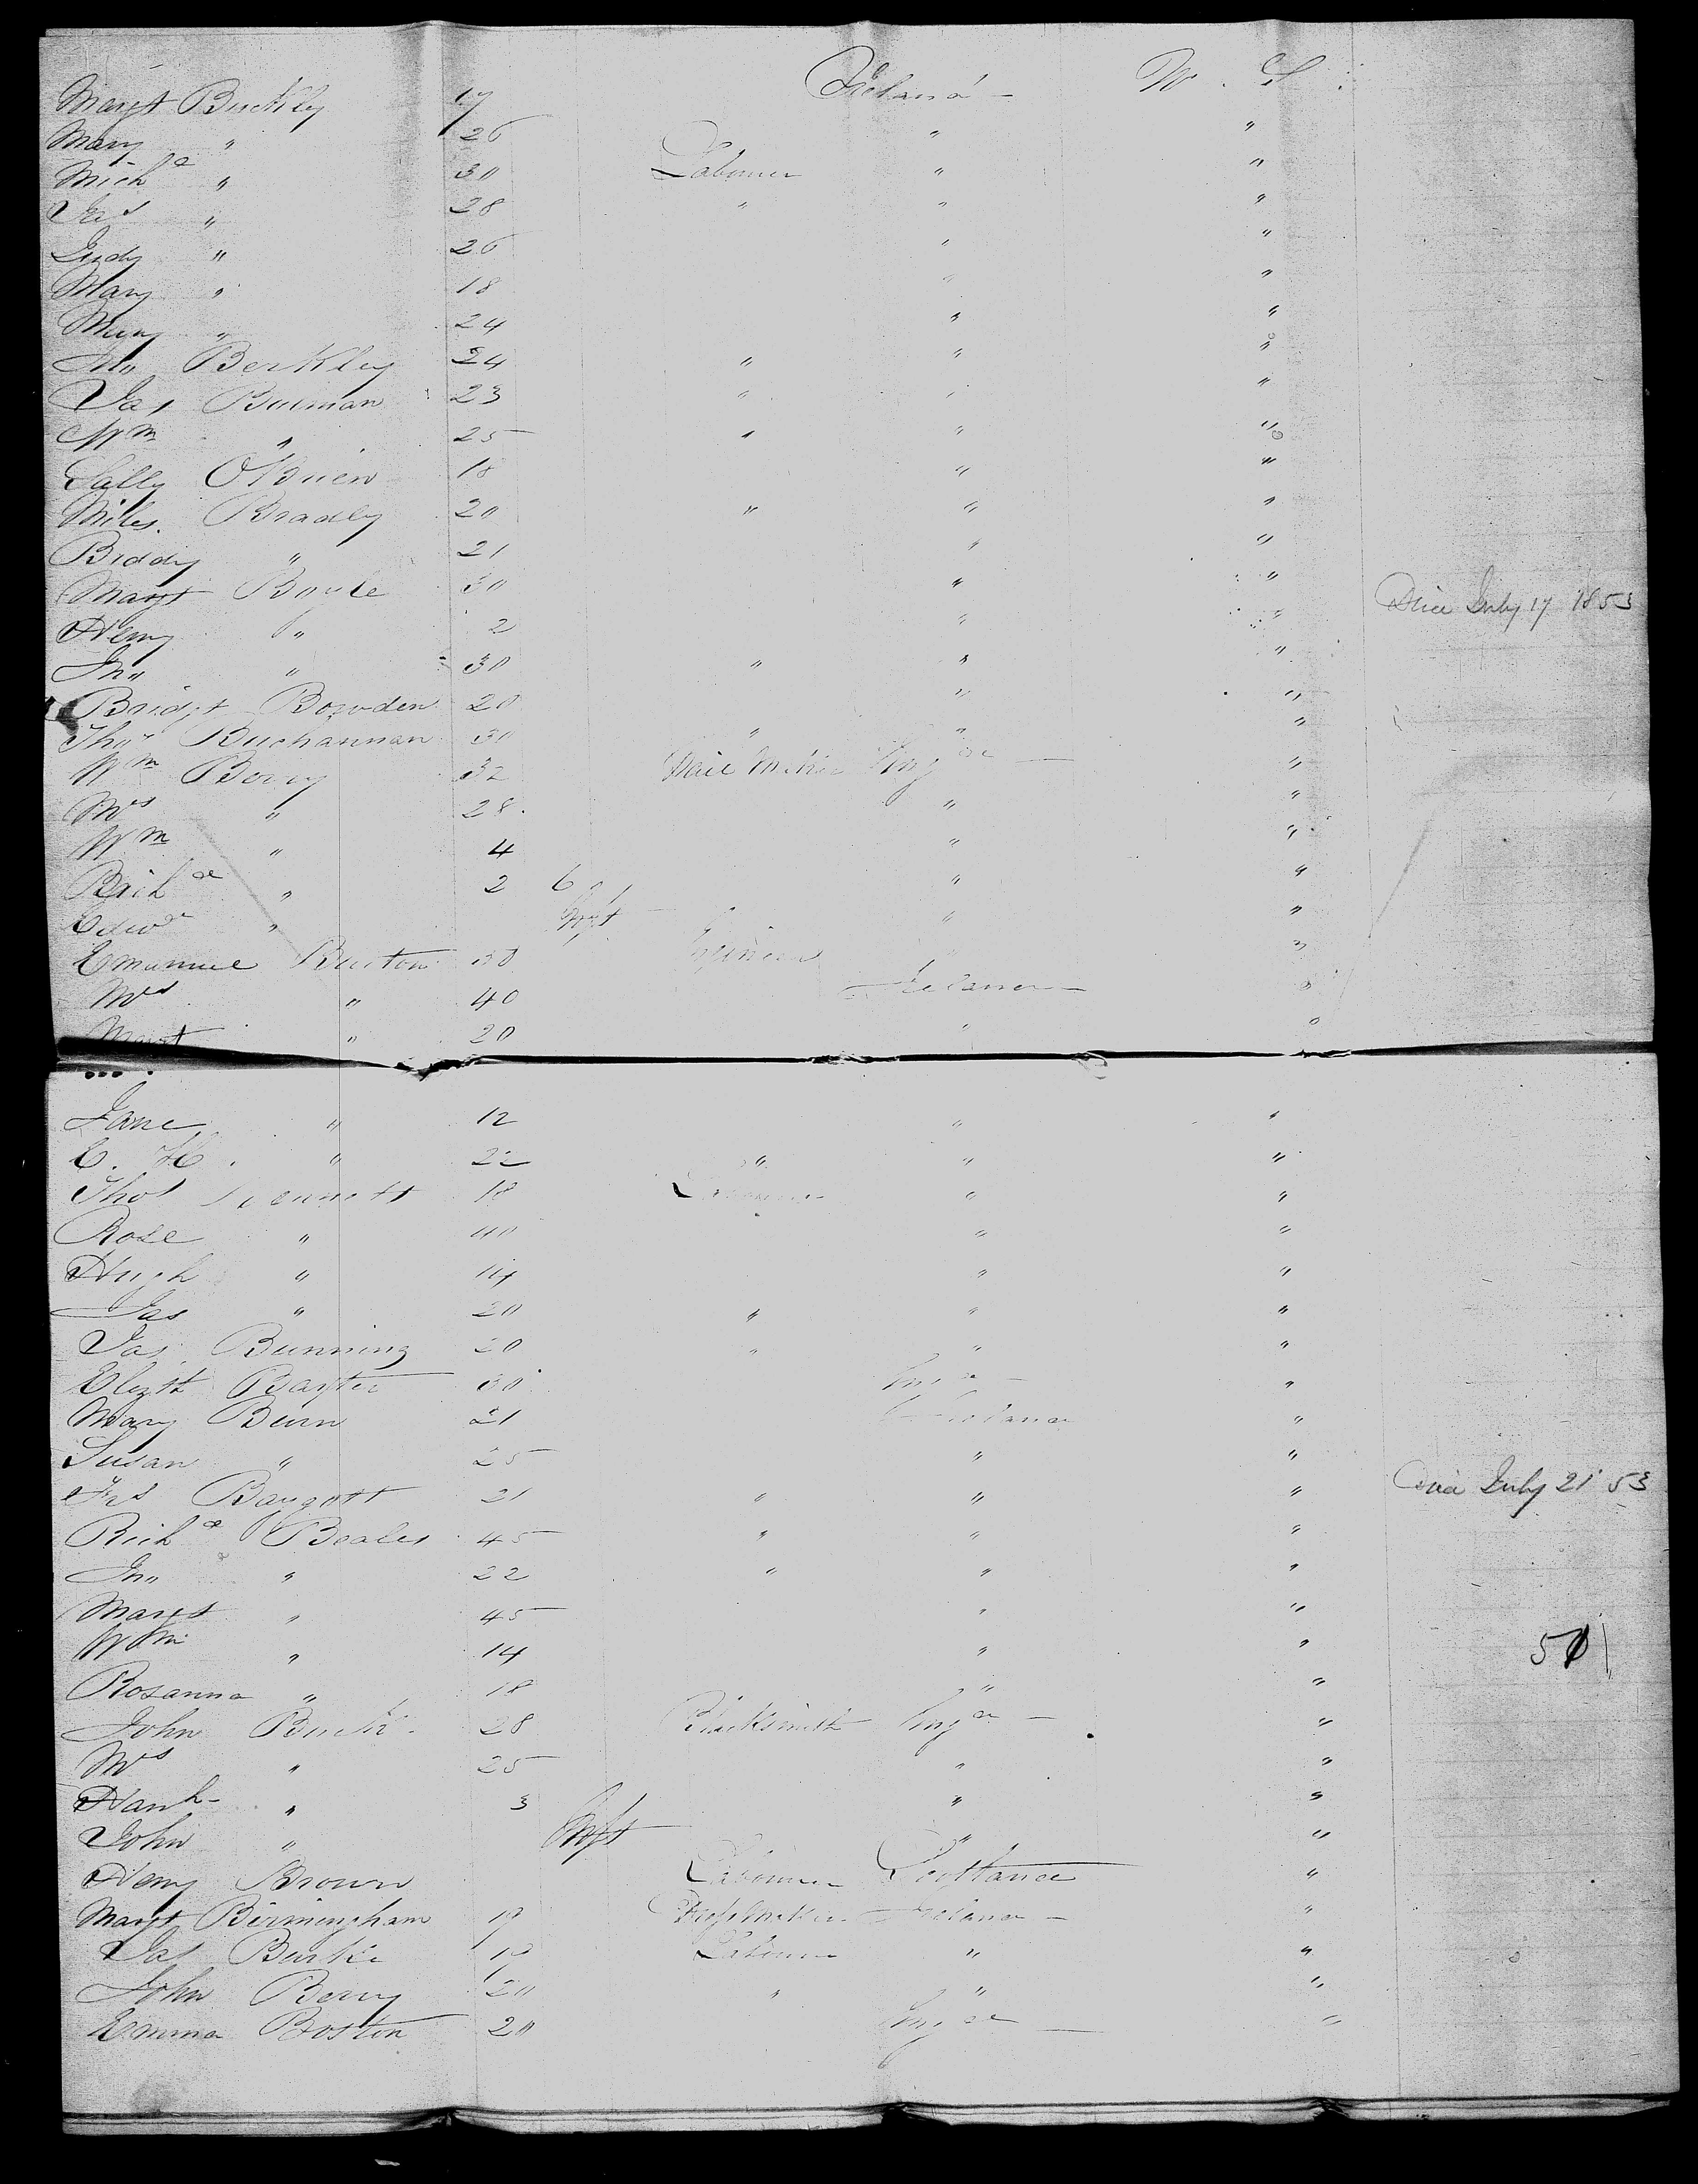 Ireland - W. S.
Margt Buckley 19
Mary " 26 " "
Michl " 30 Labourer " "
Jas " 28 " " "
Judy " 26 " "
Mary " 18 " "
Mary " 24 " "
Jno Berkley 24 " " "
Jas Buiman 23 " " "
Wm " 25 " " "
Sally O'Brien 18 " "
Miles Bradley 20 " " "
Biddy " 21 " "
Margt Boyle 30 " "
Henry " 2 " " Died July 17 1853
Jno " 30 " " "
Bridgt Bowden 20 " "
Thos Buchannan 30 " " "
Wm Berry 32 Engd - "
Mrs " 28 " "
Wm " 4 " "
Richd " 2 6 " "
Edwd " Inft " "
Emanuel Burton 30 " "
Mrs " 40 Ireland "
Margt " 20 " "
Jane " 12 " "
C. H. " 22 " " "
Thos Bennett 18 Labourer " "
Rose " 40 " "
Hugh " 14 " "
Jas " 20 " " "
Jas Bunning 20 " " "
Elizth Baxter 30 Engd - "
Mary Burn 21 Ireland "
Susan " 25 " "
Jas Baygott 21 " " " Died July 21 53
Richd Beales 45 " " "
Jno " 22 " " "
Margt " 45 " "
Wm " 14 " " 51
Rosanna " 18 " "
John Buck 28 Blacksmith Engd - "
Mrs " 25 " "
Hanh " 3 " "
John " Inft " "
Henry Brown Labourer Scotland "
Margt Birmingham 19 Dressmaker Ireland - "
Jas Burke 19 Labourer " "
John Berry 20 " " "
Emma Boston 20 Engd - "